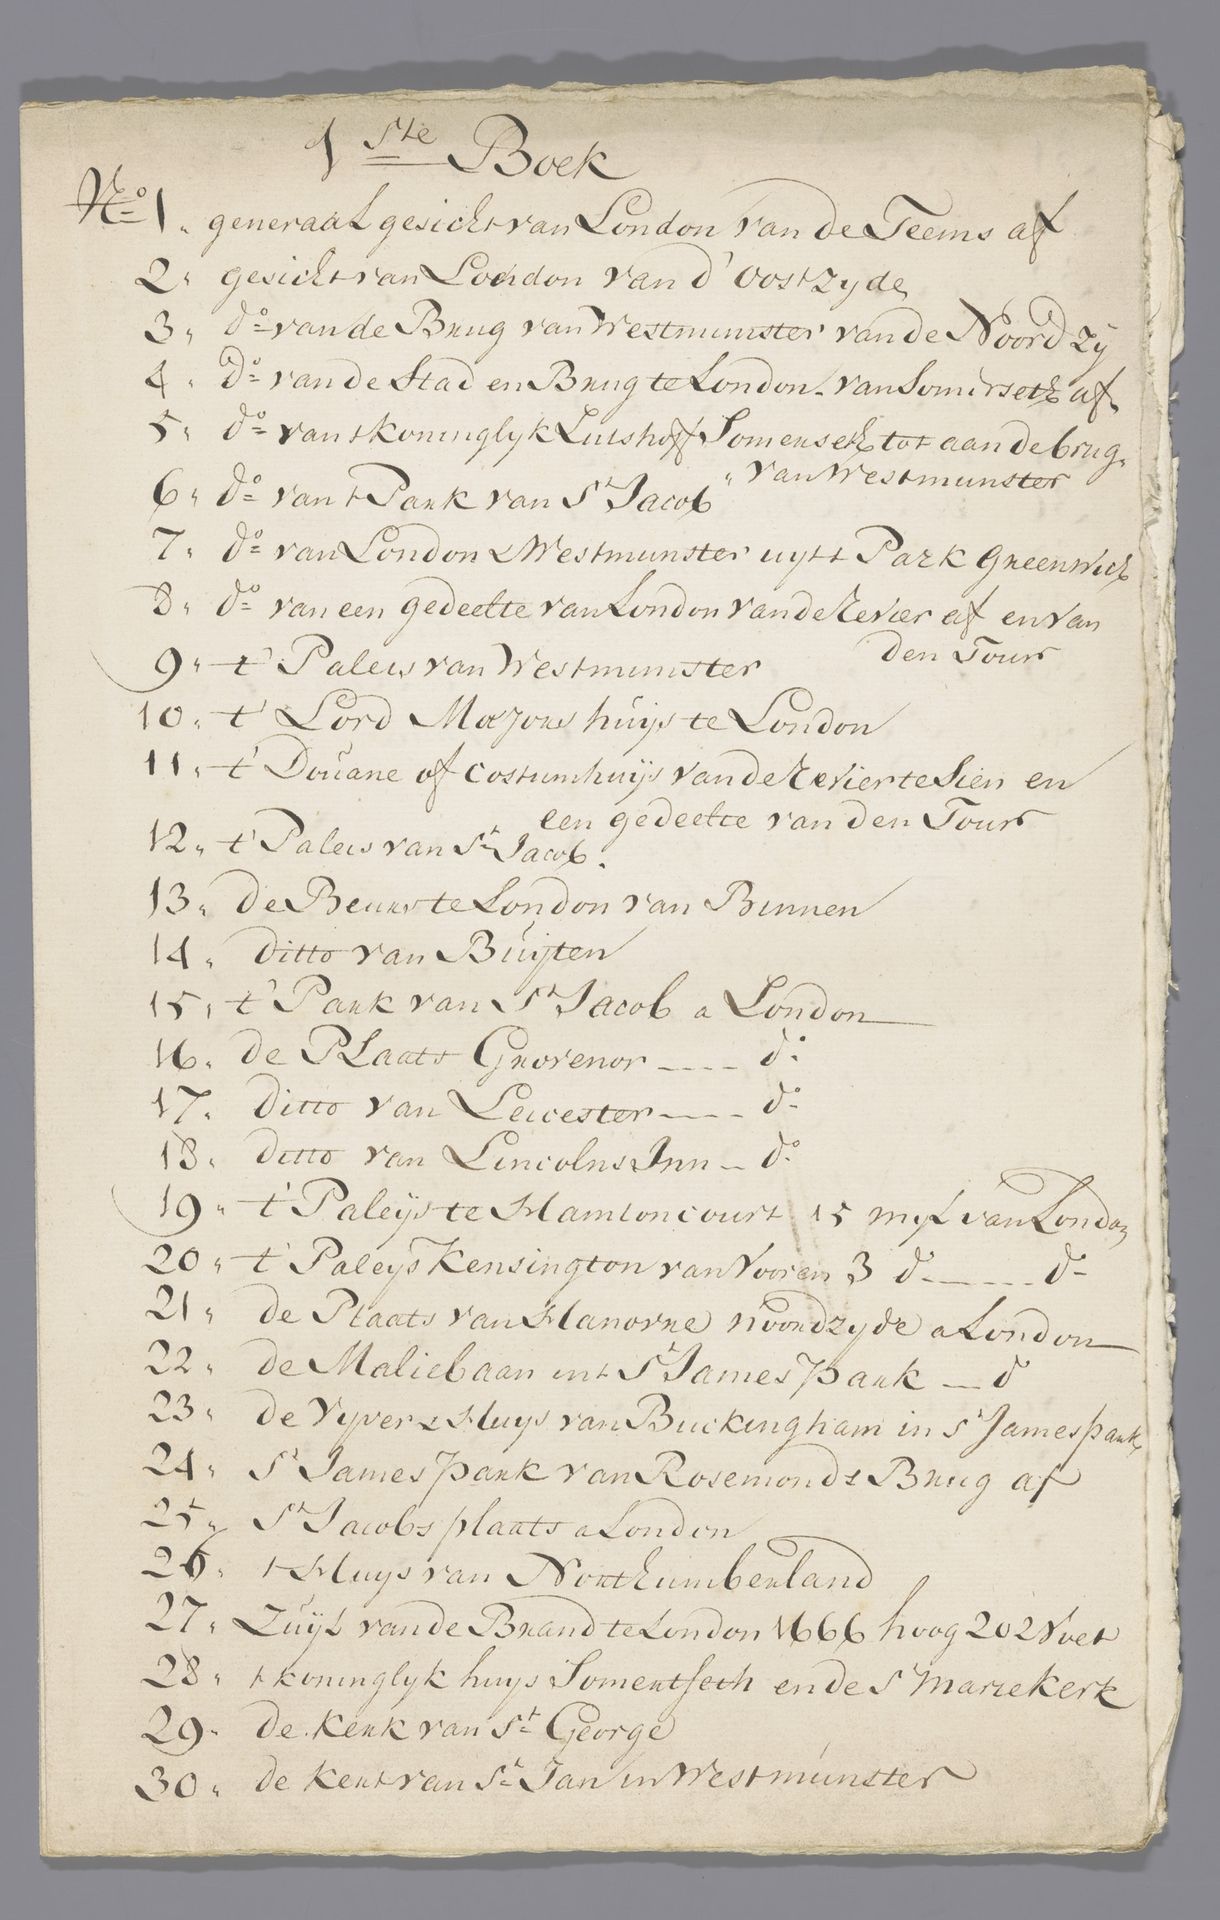 1 ste Boek
No 1 „ generaal gesicht van London van de Teems af
2 „ gesicht van London van d' Oostzyde
3 „ do van de Brug van Westmunster van de Noord zÿ
4 „ do van de Stad en Brug te London van Somerseth af
5 „ do van t koninglyk Lusthoff Somerseth tot aan de brug
„ van Westmunster
6 „ do van t Park van St Jacob
7 „ do van London & Westmunster uyt t Park Greenwich
8 „ do van een gedeelte van London van de Revier af en van
den Tour
9 „ t' Paleis van Westmunster
10 „ t' Lord Mayors huijs te London
11 „ t' Douane of Costumhuijs van de Revier te Sien en
een gedeelte van den Tour
12 „ t' Paleis van St Jacob.
13 „ de Beurs te London van Binnen
14 „ ditto van Buijten
15 „ t' Park van St Jacob a London
16 „ de Plaats Grovenor ---- do
17 „ ditto van Leicester ---- do
18 „ ditto van Lincolns Inn -- do
19 „ t' Paleÿs te Hamtoncourt 15 myl van London
20 „ t' Paleys Kensington van Vooren 3 do ---- do
21 „ de Plaats van Hanovre noordzyde a London
22 „ de Maliebaan in t St James park -- do
23 „ de Vyver & Huys van Buckingham in St James park
24 „ St James park van Rosemonds Brug af
25 „ St Jacobs plaats a London
26 „ t Huys van Northumberland
27 „ Zuÿl van de Brand te London 1666 hoog 202 Voet
28 „ t koninglyk huys Somertseth en de St Mariekerk
29 „ de kerk van St George
30 „ de kerk van St Jan in Westmunster